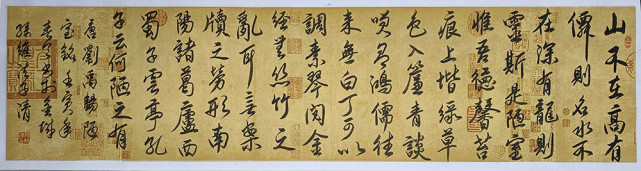 山不在高有
僊則名水不
在深有龍則
靈斯是陋室
惟吾德馨苔
痕上堦綠草
色入簾青談
笑有鴻儒往
來無白丁可以
調素琴閱金
經無絲竹之
亂耳無案
牘之勞形南
陽諸葛廬西
蜀子雲亭孔
子云何陋之有
唐劉禹錫陋
室銘壬寅年